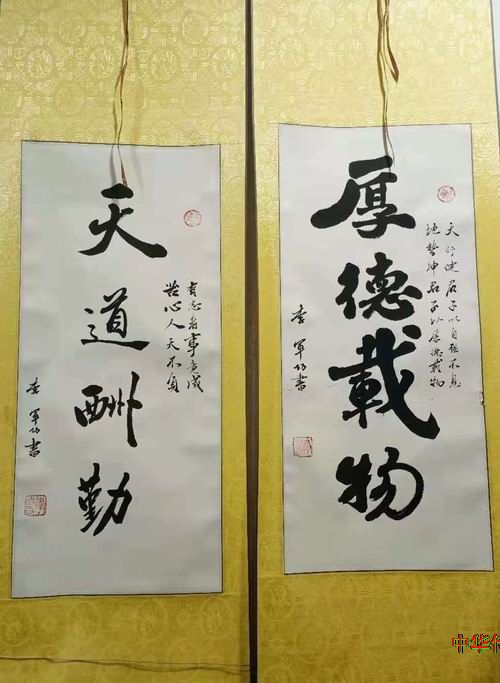 天道酬勤
有志者事竟成
苦心人天不負
李軍書
厚德載物
天行健君子以自强不息
地勢坤君子以厚德載物
李軍書
中华